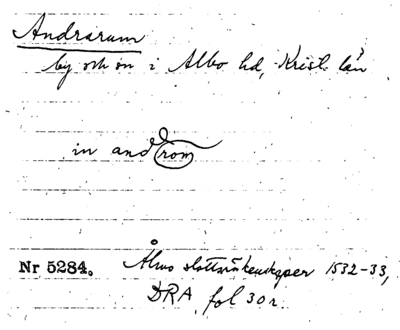 Andrarum
by och sn i Albo hd, Krist. län
in androm
Nr 5284. Åhus slottsräkenskaper 1532-33,
DRA, fol 30 r.